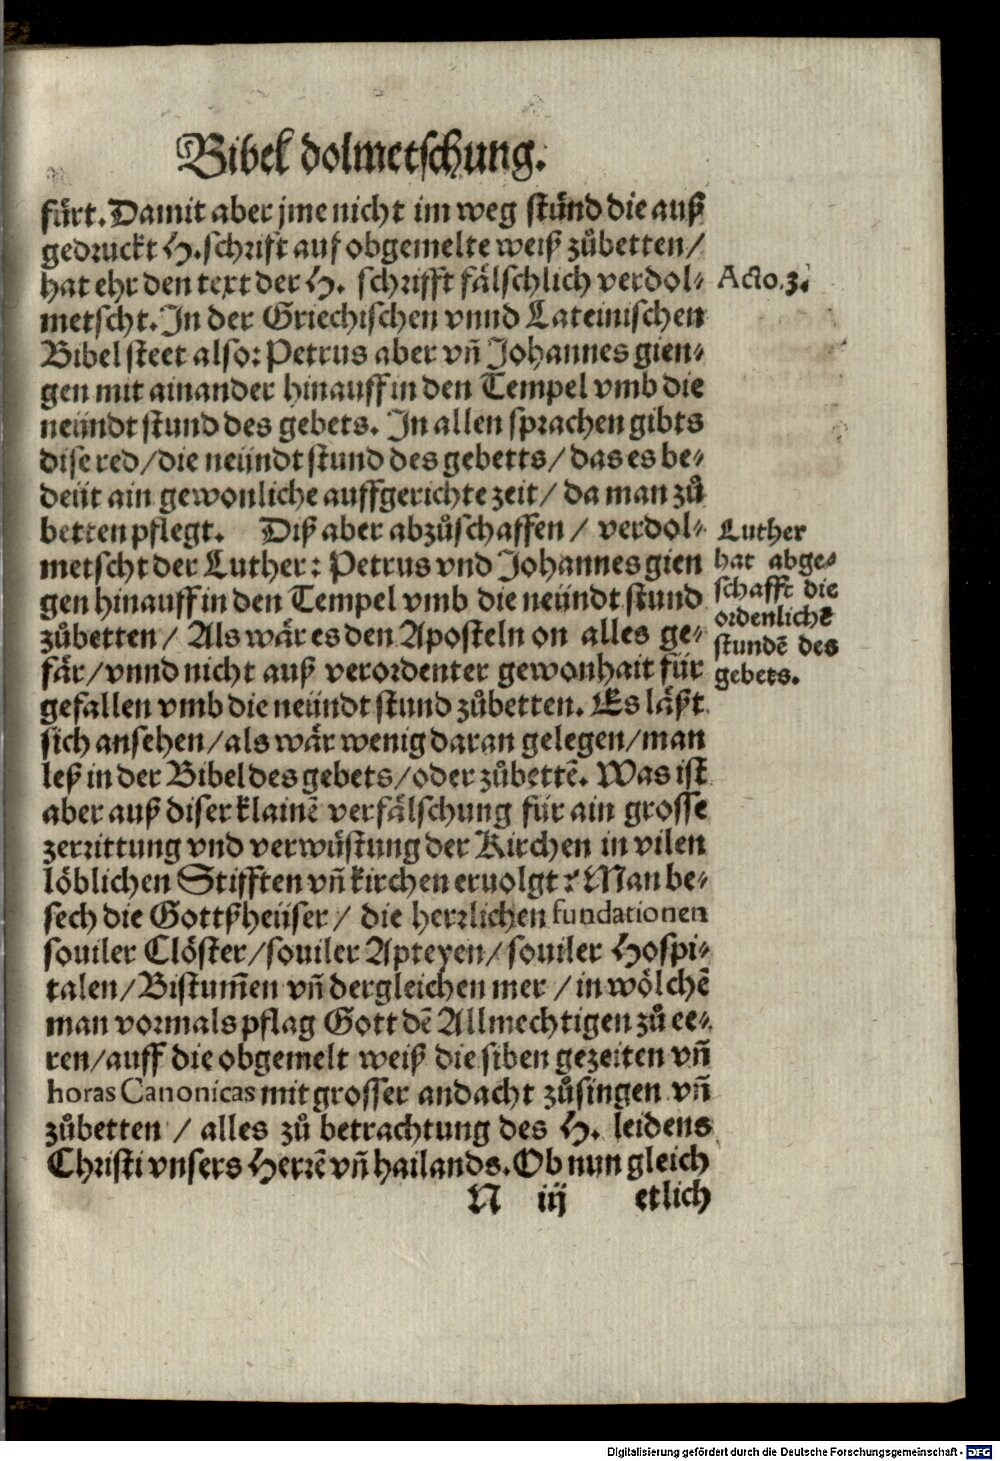 Bibel dolmetschung.
fürt. Damit aber jme nicht im weg stünd die auß
gedruckt H. schrift auf obgemelte weiß zůbetten /
hat ehr den text der H. schrifft fälschlich verdol-
metscht. In der Griechischen vnnd Lateinischen
Bibel steet also: Petrus aber vñ Johannes gien-
gen mit ainander hinauff in den Tempel vmb die
neündt stund des gebets. In allen sprachen gibts
dise red / die neündt stund des gebetts / das es be-
deüt ain gewonliche auffgerichte zeit / da man zů
betten pflegt. Diß aber abzůschaffen / verdol-
metscht der Luther: Petrus vnd Johannes gien
gen hinauff in den Tempel vmb die neündt stund
zůbetten / Als wär es den Aposteln on alles ge-
fär / vnnd nicht auß verordenter gewonhait für
gefallen vmb die neündt stund zůbetten. Es läßt
sich ansehen / als wär wenig daran gelegen / man
leß in der Bibel des gebets / oder zůbettē. Was ist
aber auß diser klainē verfälschung für ain grosse
zerrittung vnd verwüstung der Kirchen in vilen
löblichen Stifften vñ kirchen eruolgt? Man be-
sech die Gottßheüser / die herrlichen fundationen
souiler Clöster / souiler Apteyen / souiler Hospi-
talen / Bistum̄en vñ dergleichen mer / in wölchē
man vormals pflag Gott dē Allmechtigen zů ee-
ren / auff die obgemelt weiß die siben gezeiten vñ
horas Canonicas mit grosser andacht zůsingen vñ
zůbetten / alles zů betrachtung des H. leidens
Christi vnsers Herrē vñ hailands. Ob nun gleich
N iij etlich
Acto. 3.
Luther
hat abge-
schafft die
ordenlichē
stundē des
gebets.
Digitalisierung gefördert durch die Deutsche Forschungsgemeinschaft - DFG